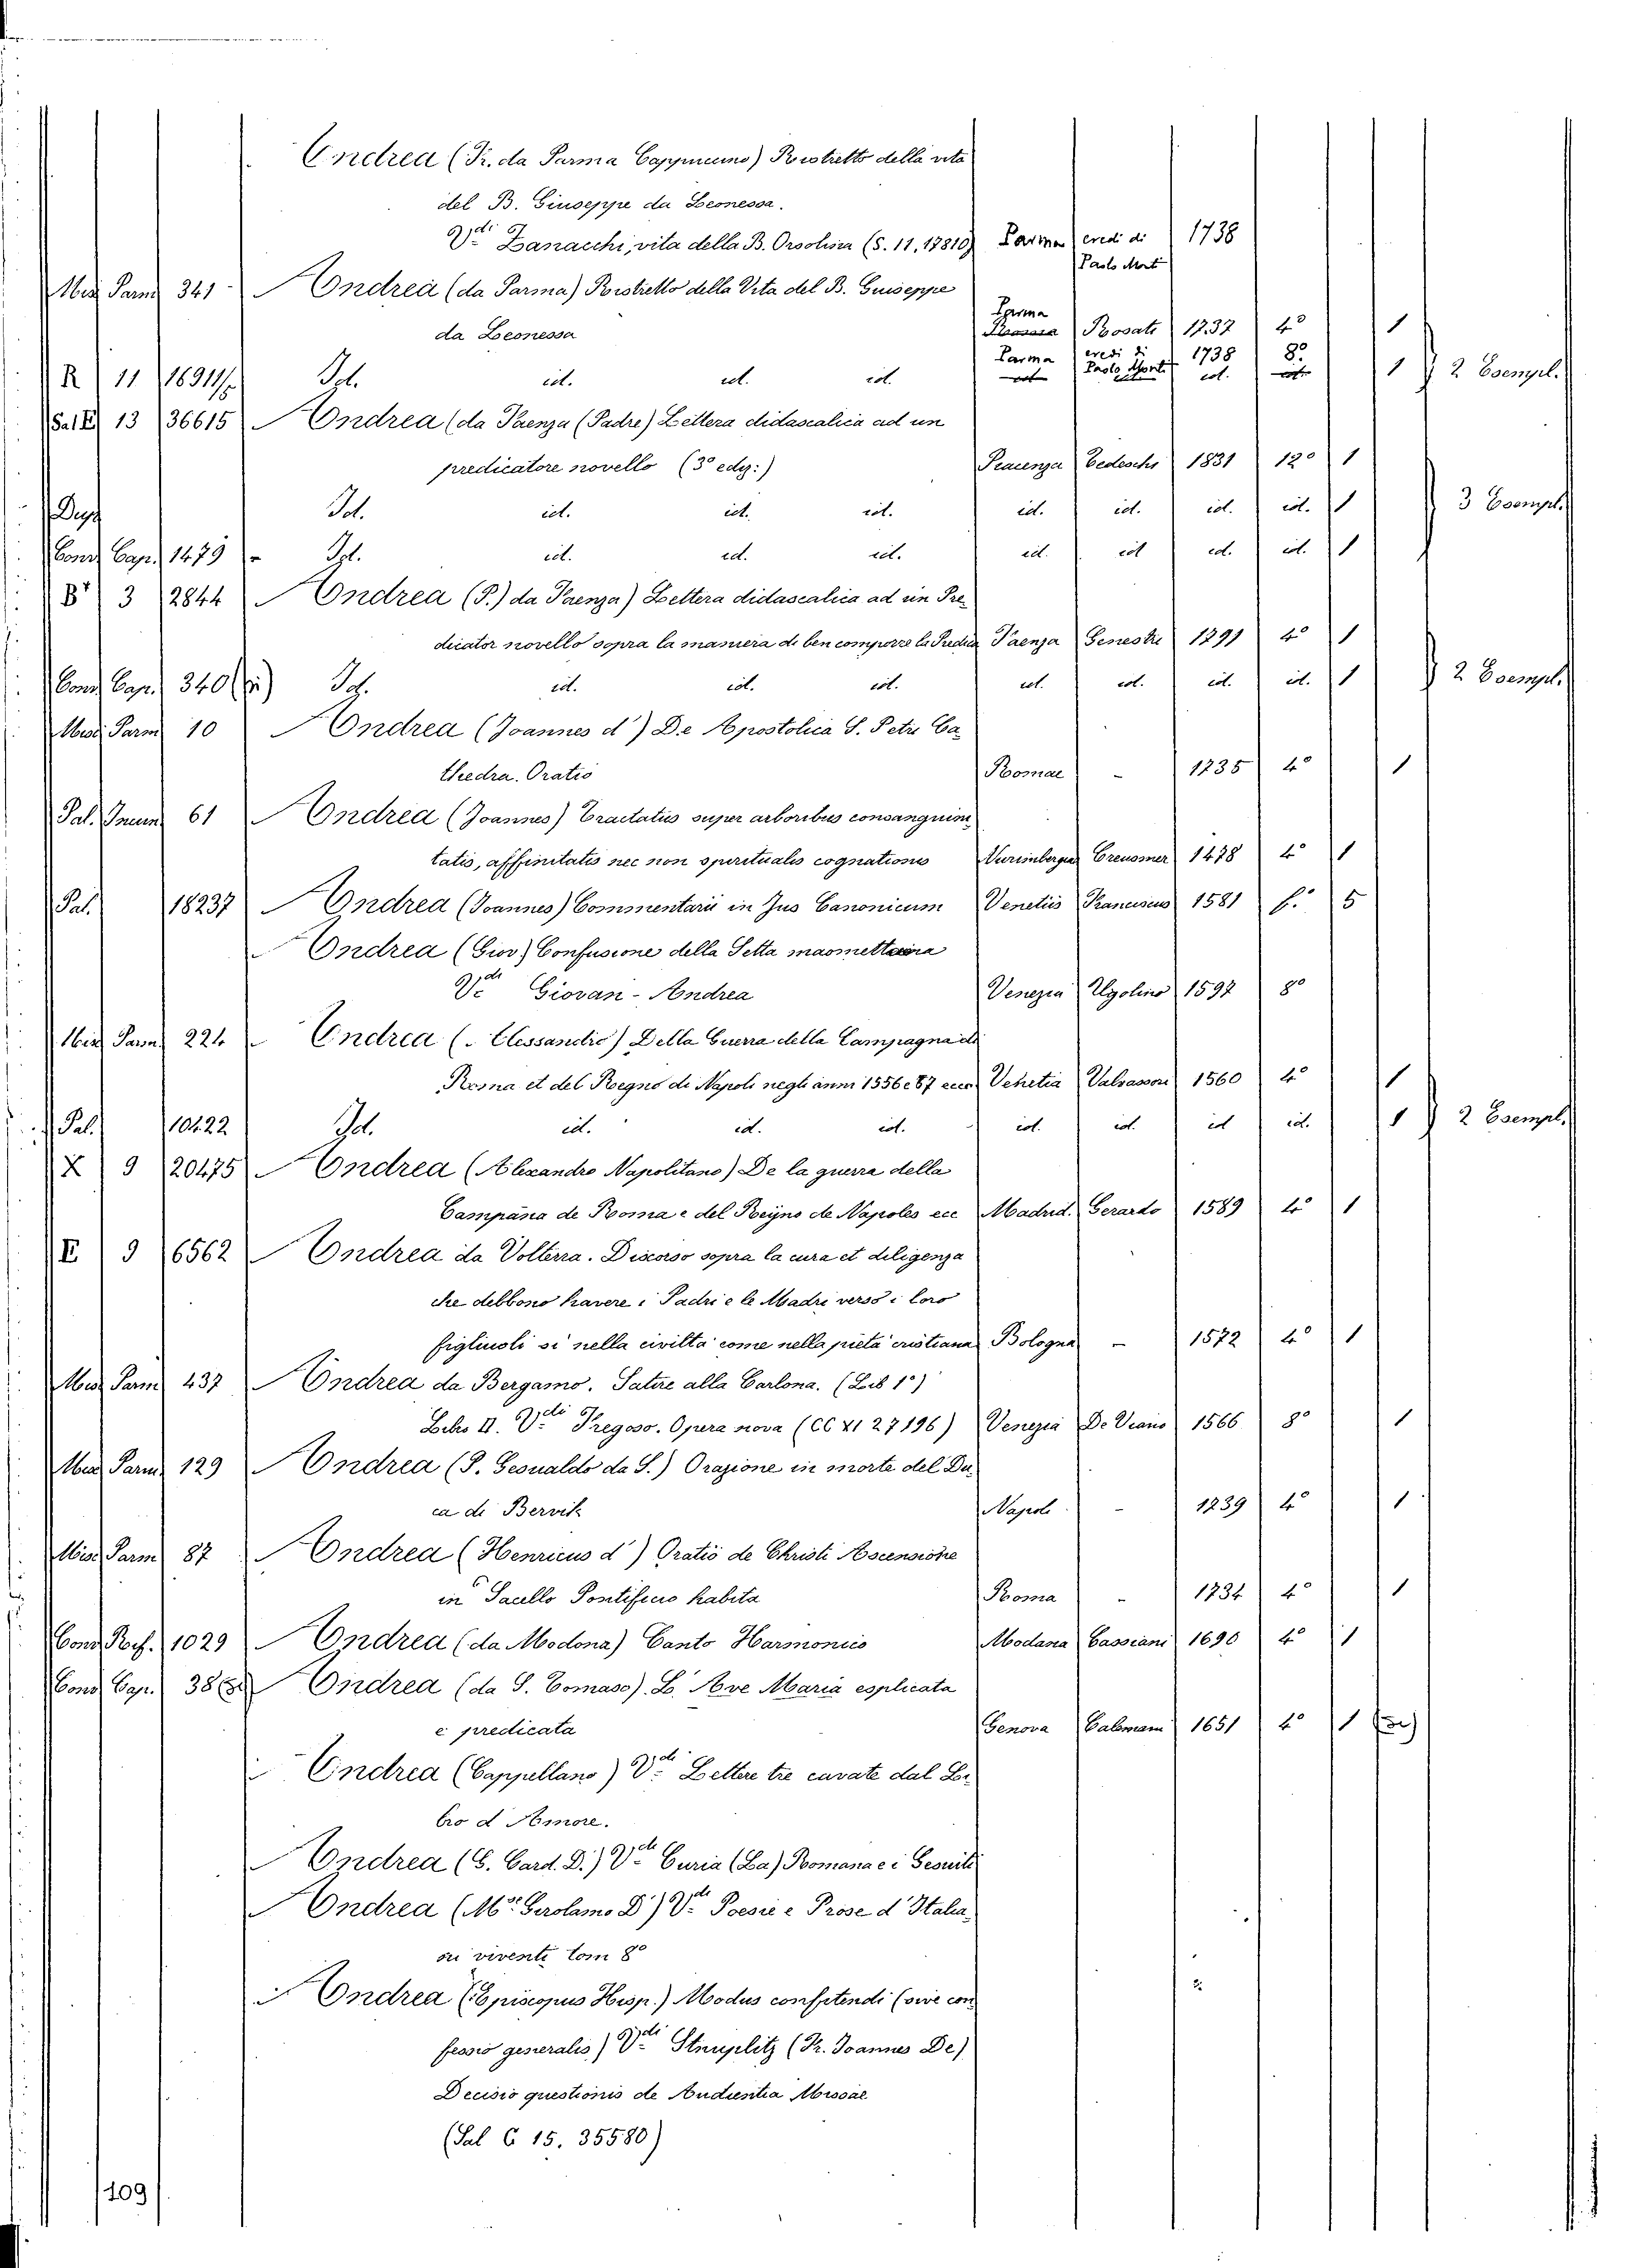 Andrea (Fr. da Parma Cappuccino) Ristretto della vita
del B. Giuseppe da Leonessa.
Vdi Zanacchi, vita della B. Orsolina (S. 11, 17810) Parma eredi di 1738
Paolo Monti
Misc Parm 341 Andrea (da Parma) Ristretto della Vita del B. Giuseppe
Parma
da Leonessa Rosati 1737 4º 1
Parma eredi di Paolo Monti 1738 8º
R 11 16911/ Id. id. id. id. id. id. id. 1 2 Esempl.
Sal E 13 36615 Andrea (da Faenza (Padre) Lettera didascalica ad un
predicatore novello (3ª ediz:) Piacenza Tedeschi 1831 12º 1
Dup Id. id. id. id. id. id. id. id. 1 3 Esempl.
Conv Cap. 1479 Id. id. id. id. id. id id. id. 1
B+ 3 2844 Andrea (P.) da Faenza) Lettera didascalica ad un Pre
dicator novello sopra la maniera di ben comporre le Prediche Faenza Genestri 1791 4º 1
Conv Cap. 340 Id. id. id. id. id. id. id. id. 1 2 Esempl.
Misc Parm 10 Andrea (Joannes d') De Apostolica S. Petri Ca
thedra. Oratio Romae - 1735 4º 1
Pal. Incun 61 Andrea (Joannes) Tractatus super arboribus consanguini
tatis, affinitatis nec non spiritualis cognationis Nurimbergae Creusner 1478 4º 1
Pal. 18237 Andrea (Joannes) Commentarii in Jus Canonicum Venetiis Franciscus 1581 f. 5
Andrea (Giov) Confusione della Setta maomettana
Vdi Giovan-Andrea Venezia Ugolino 1597 8º
Misc Parm 224 Andrea (Alessandro) Della Guerra della Campagna di
Roma et del Regno di Napoli negli anni 1556 e 57 ecc Venetia Valvassori 1560 4º 1
Pal. 10422 Id. id. id. id. id. id. id id. 1 2 Esempl.
X 9 20475 Andrea (Alexandro Napolitano) De la guerra della
Campana de Roma e del Reyno de Napoles ecc Madrid. Gerardo 1589 4º 1
E 9 6562 Andrea da Volterra. Discorso sopra la cura et diligenza
che debbono havere i Padri e le Madri verso i loro
figliuoli si nella civiltà come nella pietà cristiana Bologna - 1572 4º 1
Misc Parm 437 Andrea da Bergamo. Satire alla Carlona. (Lib 1º)
Libro II. Vdi Fregoso. Opera nova (CC XI 27196) Venezia De Viano 1566 8º 1
Misc Parm 129 Andrea (P. Gesualdo da S.) Orazione in morte del Du
ca di Bervik Napoli - 1739 4º 1
Misc Parm 87 Andrea (Henricus d') Oratio de Christi Ascensione
in Sacello Pontificio habita Roma - 1734 4º 1
Conv Rif. 1029 Andrea (da Modona) Canto Harmonico Modana Cassiani 1690 4º 1
Conv Cap. 38 Andrea (da S. Tomaso). L'Ave Maria esplicata
e predicata Genova Calenzani 1651 4º 1
Andrea (Cappellano) Vdi Lettere tre cavate dal Li
bro d'Amore.
Andrea (G. Card. D.) Vdi Curia (La) Romana e i Gesuiti
Andrea (Mr. Gerolamo D') Vdi Poesie e Prose d'Italia
ni viventi tom 8º
Andrea (Episcopus Hisp.) Modus confitendi (sive con
fessio generalis) Vdi Struplitz (Fr. Joannes De)
Decisio questionis de Audientia Missae
(Sal G 15. 35580)
109